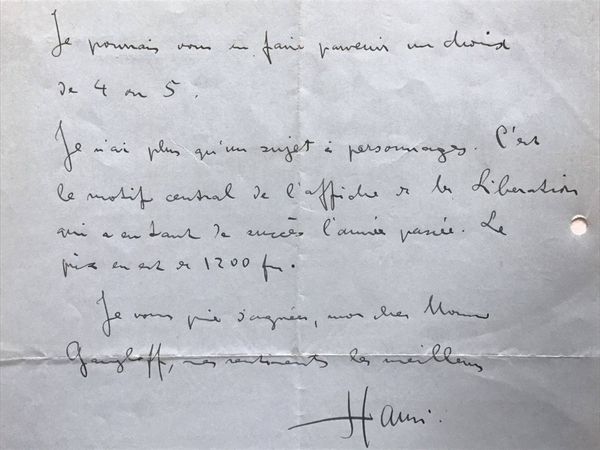 Je pourrais vous en faire parvenir un choix
de 4 ou 5.
Je n'ai plus qu'un sujet à personnages. C'est
le motif central de l'affiche de la Libération
qui a eu tant de succès l'année passée. Le
prix en est de 1200 frs.
Je vous prie d'agréer, mon cher Monsieur
Gangloff, mes sentiments les meilleurs
Hansi.